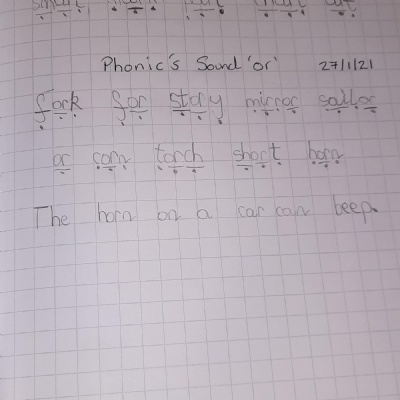 smart
Phonic's Sound 'or' 27/1/21
fork for story mirror sailor
or corn torch short horn
The horn on a car can beep.